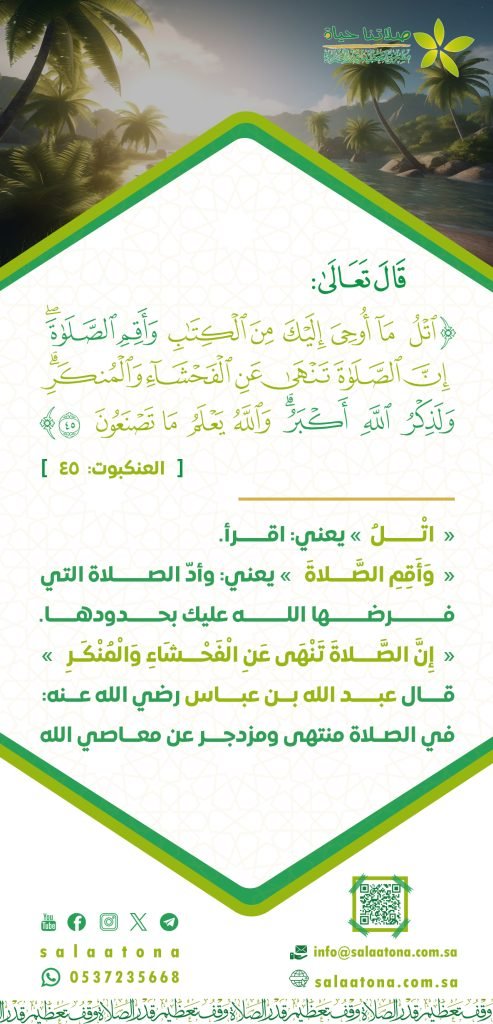 صلاتنا حياة
قَالَ تَعَالَىٰ:
﴿ٱتۡلُ مَآ أُوحِيَ إِلَيۡكَ مِنَ ٱلۡكِتَٰبِ وَأَقِمِ ٱلصَّلَوٰةَۖ
إِنَّ ٱلصَّلَوٰةَ تَنۡهَىٰ عَنِ ٱلۡفَحۡشَآءِ وَٱلۡمُنكَرِۗ
وَلَذِكۡرُ ٱللَّهِ أَكۡبَرُۗ وَٱللَّهُ يَعۡلَمُ مَا تَصۡنَعُونَ ٤٥﴾
[ العنكبوت: ٤٥ ]
« اتْـــــلُ » يعني: اقــرأ.
« وَأَقِمِ الصَّــلاةَ » يعني: وأدّ الصــلاة التي
فــرضــها اللــه عليك بحــدودهــا.
« إِنَّ الصَّــلاةَ تَنْهَى عَنِ الْفَحْــشَاءِ وَالْمُنْكَــرِ »
قــال عبــد الله بــن عبــاس رضي الله عنــه:
في الصــلاة منتهى ومزدجــر عن معــاصي الله
salaatona
0537235668
info@salaatona.com.sa
salaatona.com.sa
وقف تعظيم قدر الصلاة وقف تعظيم قدر الصلاة وقف تعظيم قدر الصلاة وقف تعظيم قدر الصلاة